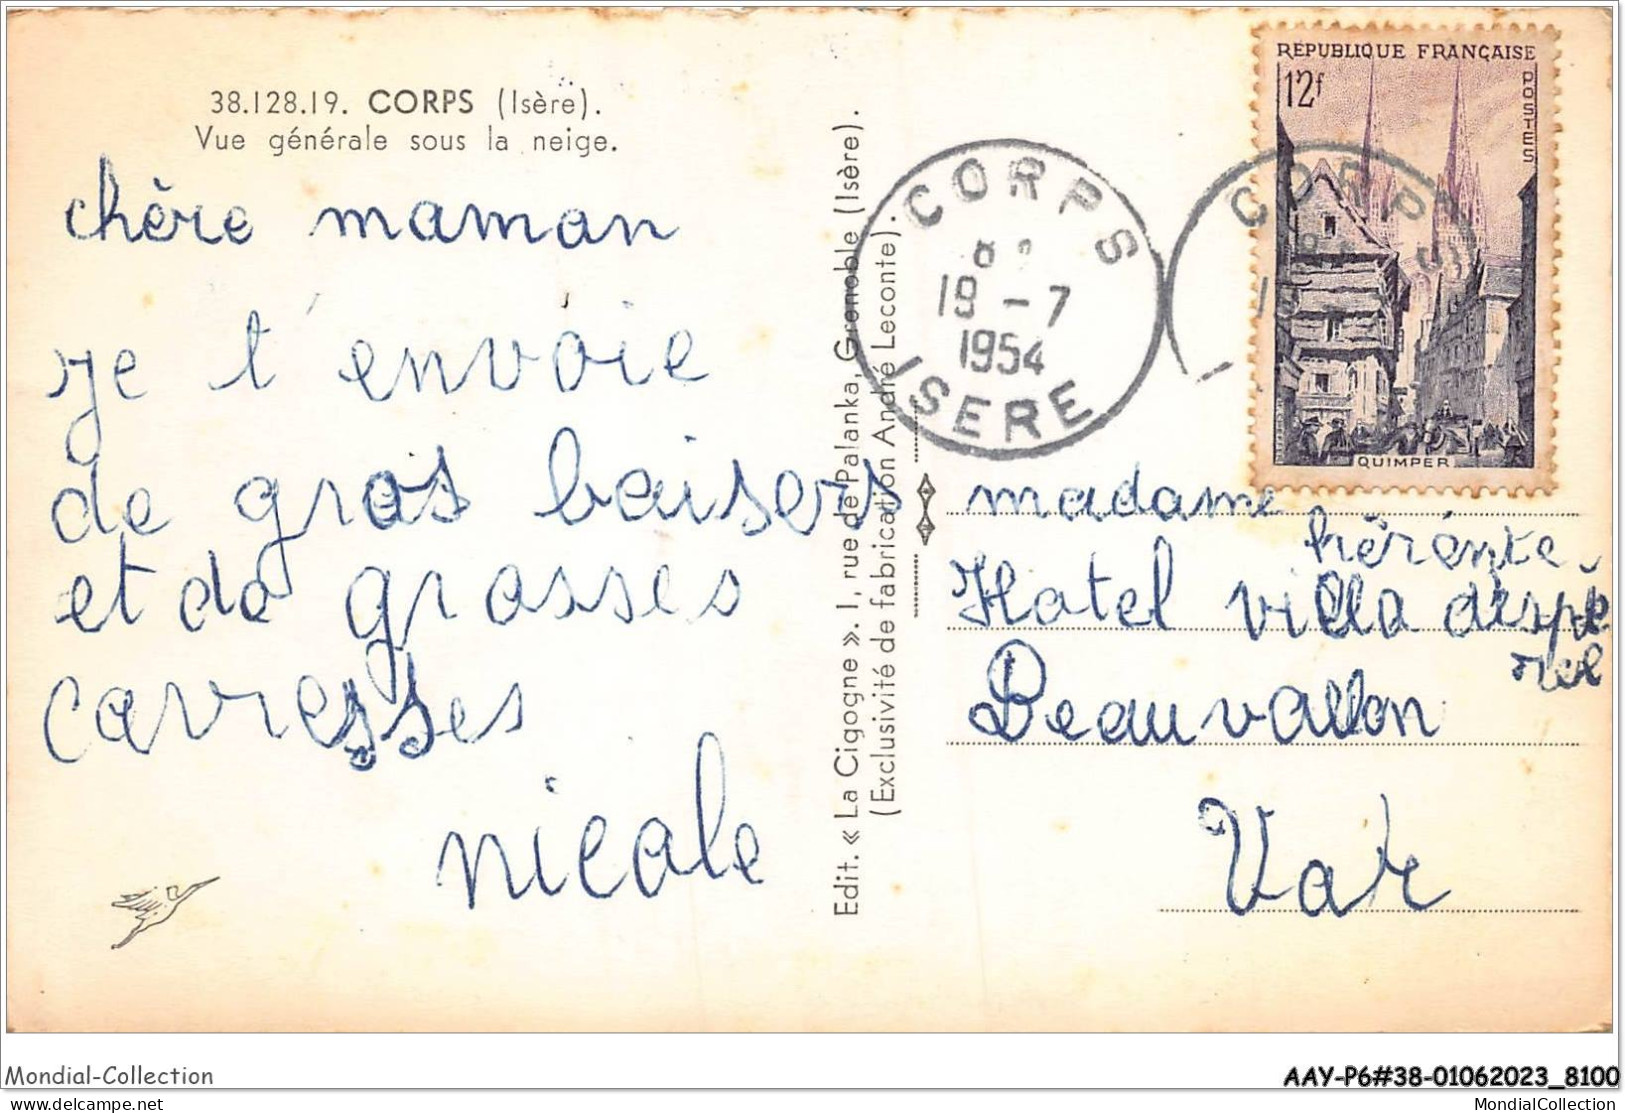 38.128.19. CORPS (Isère).
Vue générale sous la neige.
chère maman
je t'envoie
de gros baisers
et de grosses
carresses
nicole
Edit. « La Cigogne ». 1, rue de Palanka, Grenoble (Isère).
(Exclusivité de fabrication André Leconte).
CORPS
19 - 7
1954
ISERE
CORPS
RÉPUBLIQUE FRANÇAISE
12f
POSTES
QUIMPER
madame
Hotel villa
Beauvallon
Var
Mondial-Collection
AAY-P6#38-01062023_8100
delcampe.net
MondialCollection